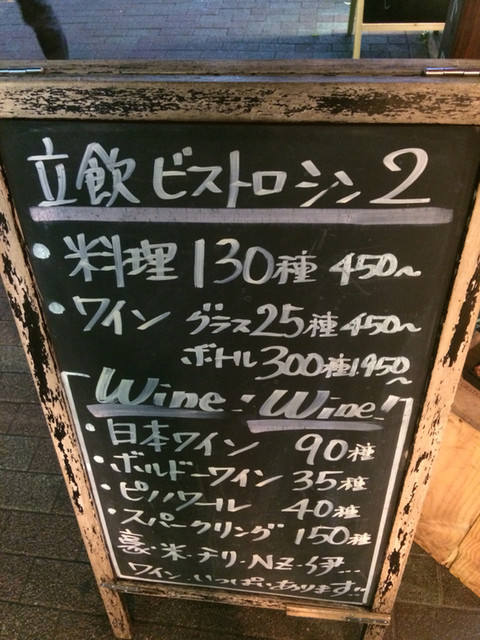 立飲ビストロシン2
・料理130種 450〜
・ワイン グラス25種 450〜
ボトル 300種 1,950〜
Wine! Wine!
・日本ワイン 90種
・ボルドーワイン 35種
・ピノノワール 40種
・スパークリング 150種
豪・米・チリ・NZ・伊…
ワインいっぱいあります!!